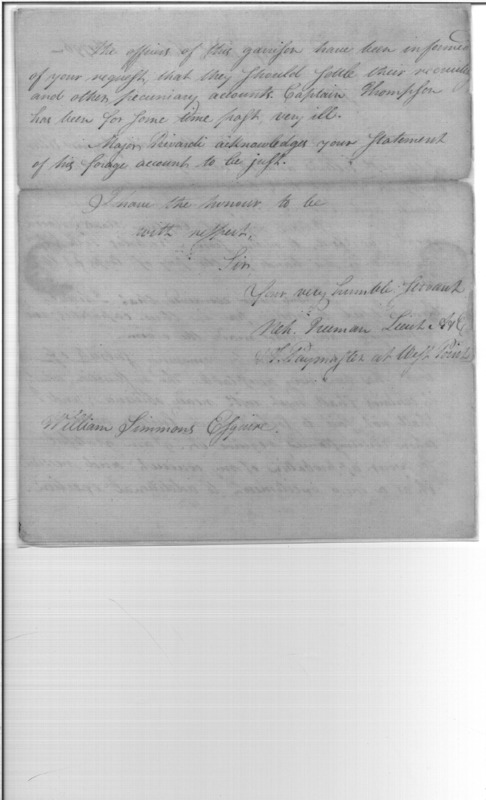 The officers of this garrison have been informed
of your request, that they should settle their recruiting
and other pecuniary accounts. Captain Thompson
has been for some time past, very ill.
Major Rivardi acknowledges your statement
of his forage account to be just.
I have the honour to be
with respect,
Sir
Your very humble servant
Neh. Freeman Lieut. A & E
& Paymaster at West Point
William Simmons Esquire.